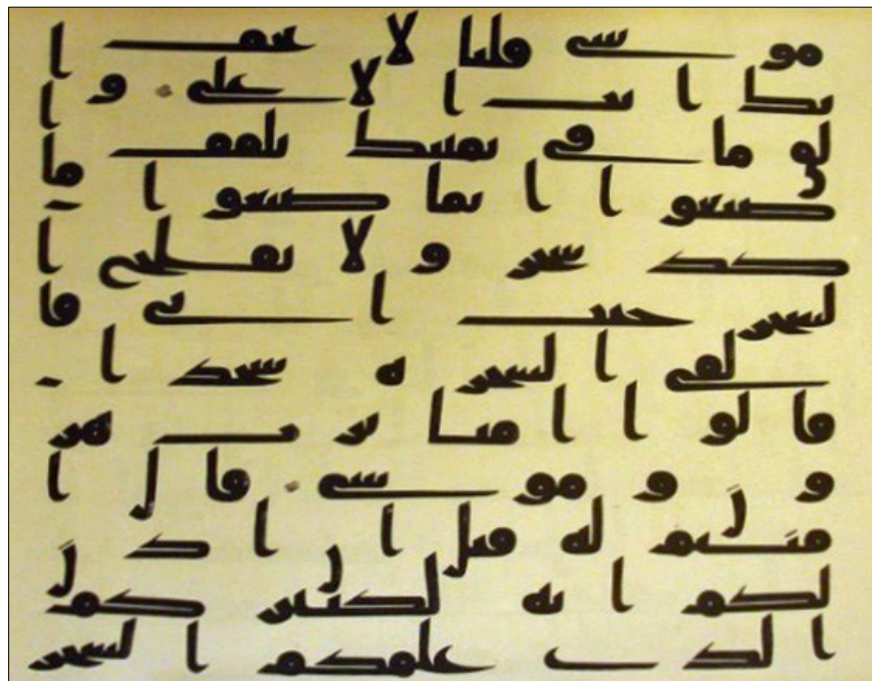 موسى قلنا لا تخف ا
نك انت الاعلى وا
لق ما في يمينك تلقف ما
صنعوا انما صنعوا
كيد سحر ولا يفلح ا
لسحر حيث اتى فا
لقى السحرة سجدا
قالوا امنا برب هر
ون وموسى قال ا
منتم له قبل ان اذن
لكم انه لكبيركم
الذي علمكم السحر